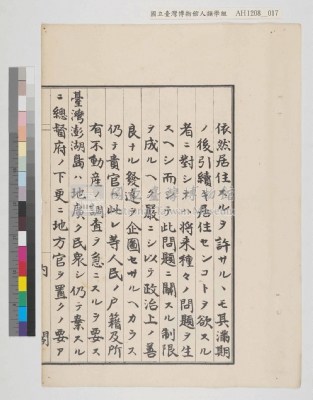 國立臺灣博物館人類學組 AH1208_017
依然居住スルヲ許サルヽモ其滿期
ノ後引續キ居住センコトヲ欲スル
者ニ對シテハ將來種々ノ問題ヲ生
スヘシ而シテ此問題ニ關スル制限
ヲ成ルヘク嚴ニシ以テ政治上ノ善
良ナル發達ヲ企圖セサルヘカラス
仍テ貴官ハ此レ等人民ノ戶籍及所
有不動産ノ調査ヲ急ニスルヲ要ス
臺灣澎湖島ハ地廣ク民衆シ仍テ
ニ總督府ノ下更ニ地方官ヲ置クノ要ア
內閣